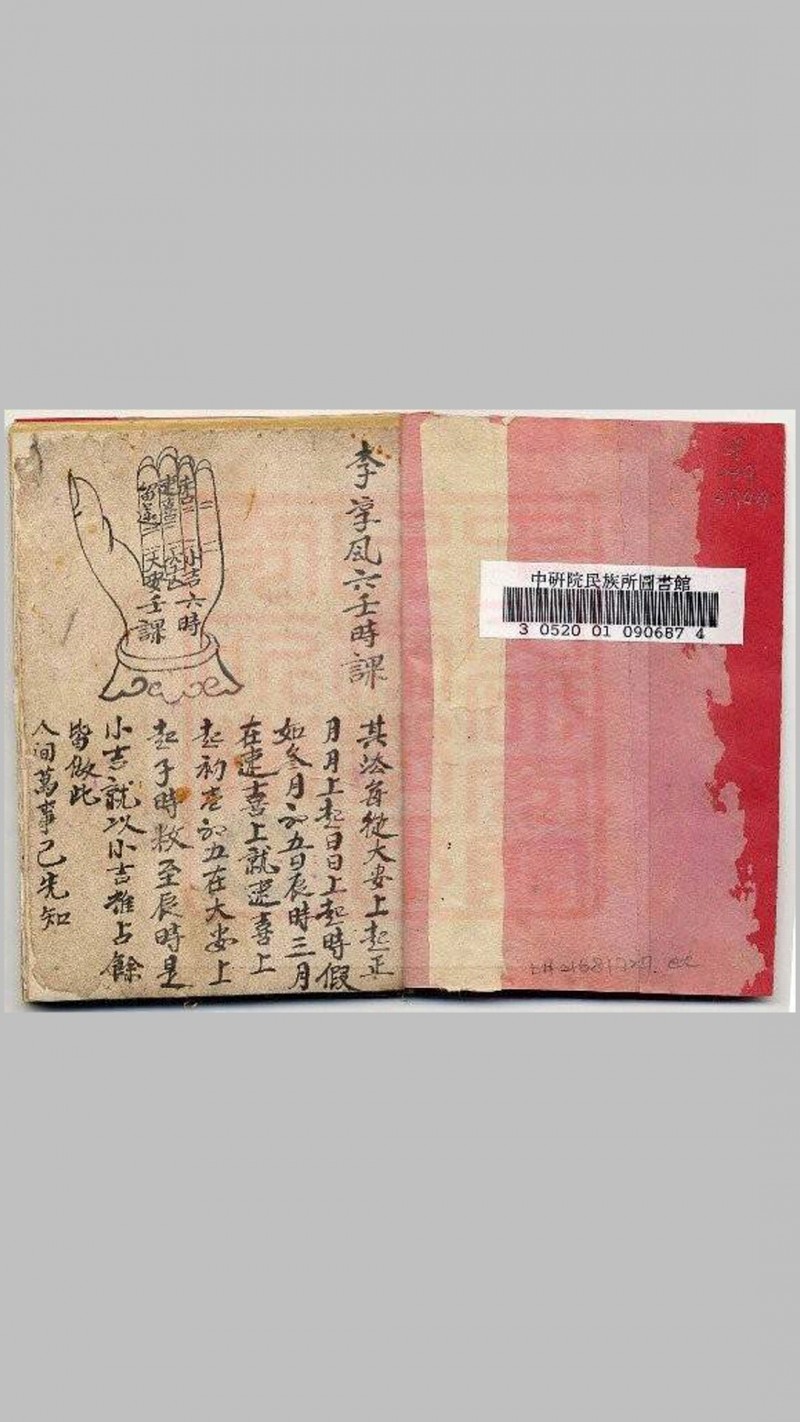 李淳風六壬時課
其法每從大安上起正
月月上起日日上起時假
如叁月初五日辰時三月
在速喜上就速喜上
起初壱初五在大安上
起子時数至辰時是
小吉就以小吉推占餘
皆倣此
人间萬事已先知
留連
速喜
赤口
大安
空亡
小吉
六壬時課
中研院民族所圖書館
3 0520 01 090687 4